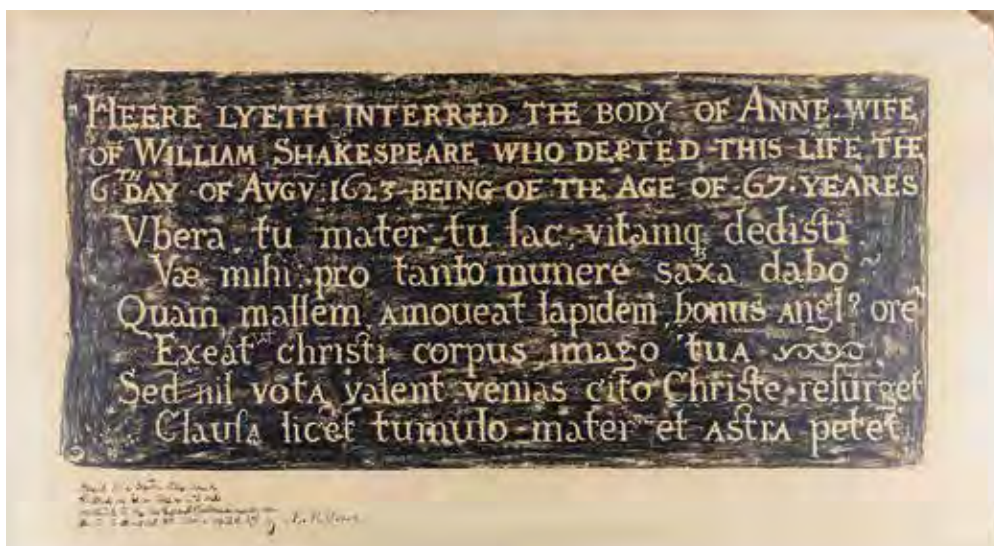 HEERE LYETH INTERRED THE BODY OF ANNE WIFE
OF WILLIAM SHAKESPEARE WHO DEPTED THIS LIFE THE
6TH DAY OF AVGV 1623 BEING OF THE AGE OF 67 YEARES
Vbera, tu mater, tu lac, vitamq dedisti
Væ mihi pro tanto munere saxa dabo
Quam mallem, amoueat lapidem, bonus angl? ore
Exeat christi corpus imago tua
Sed nil vota valent venias cito Christe resurget
Clausa licet tumulo mater et astra petet